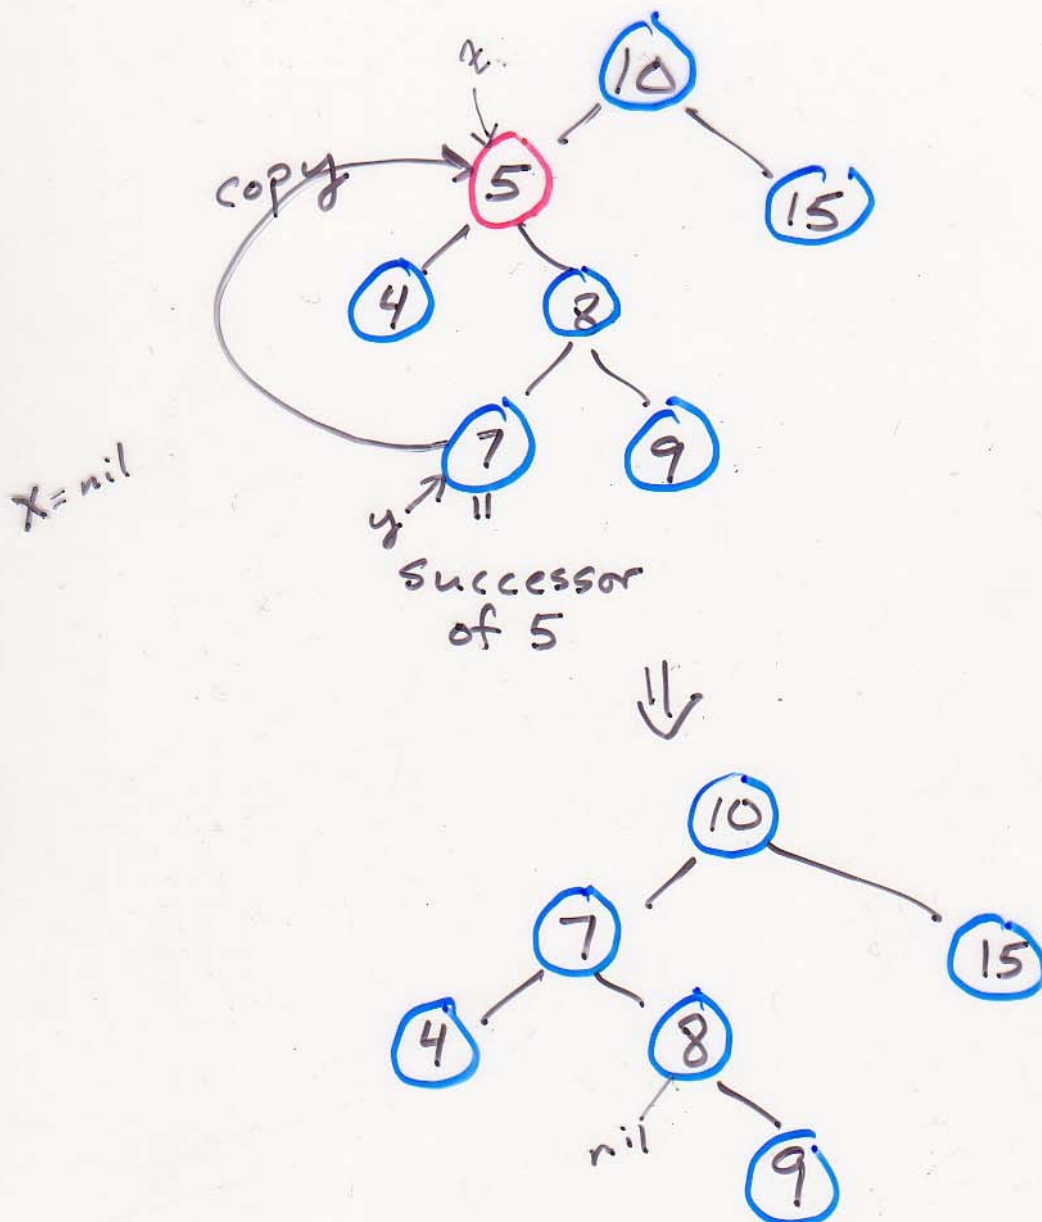 x
10
copy
5
15
4
8
7
9
X = nil
y
"
successor
of 5
10
7
15
4
8
nil
9